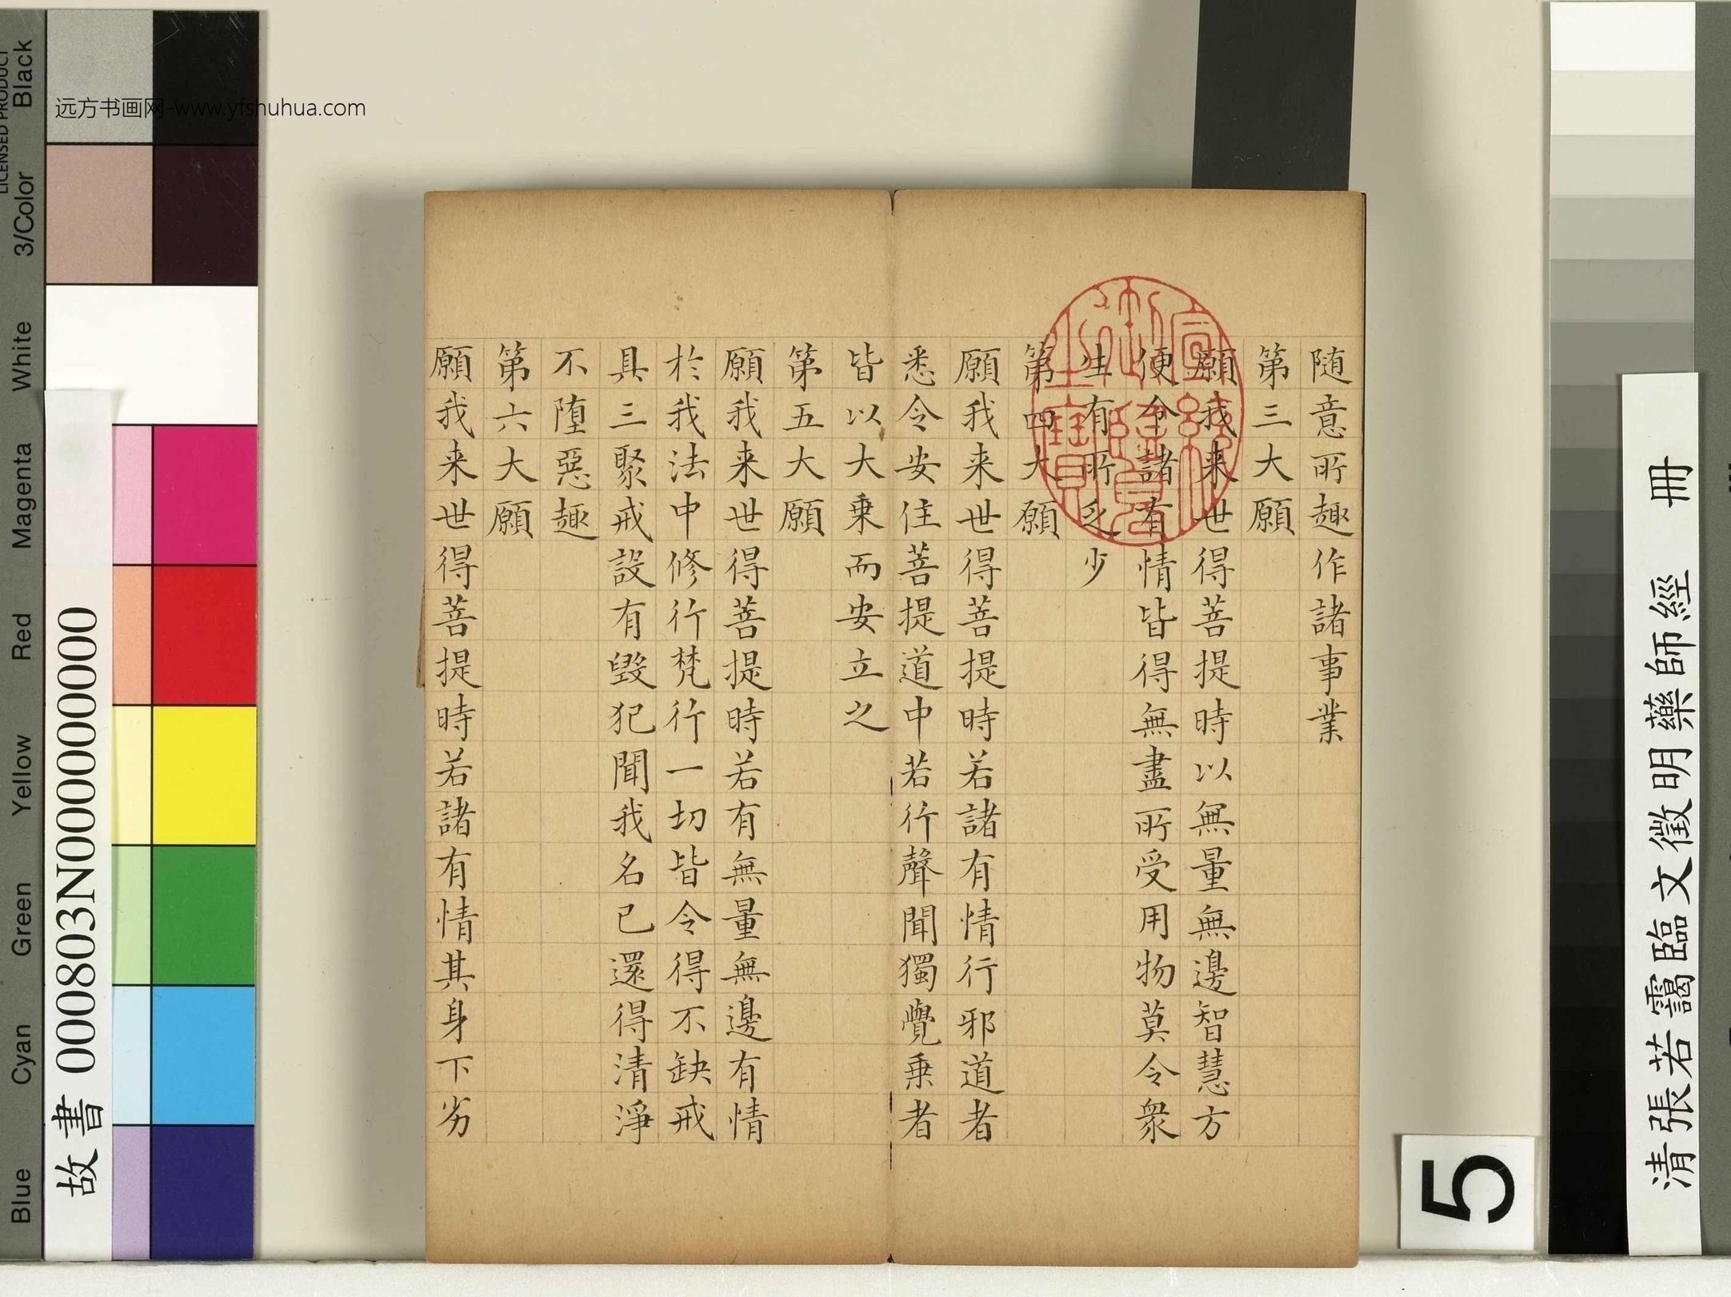 随意所趣作諸事業
第三大願
願我来世得菩提時以無量無邊智慧方
便令諸有情皆得無盡所受用物莫令衆
生有所乏少
第四大願
願我来世得菩提時若諸有情行邪道者
悉令安住菩提道中若行聲聞獨覺乗者
皆以大乗而安立之
第五大願
願我来世得菩提時若有無量無邊有情
於我法中修行梵行一切皆令得不缺戒
具三聚戒設有毀犯聞我名已還得清淨
不墮惡趣
第六大願
願我来世得菩提時若諸有情其身下劣
清張若靄臨文徵明藥師經 冊
故書 000803N000000000
5
远方书画网-www.yfshuhua.com
LICENSED PRODUCT
Black
3/Color
White
Magenta
Red
Yellow
Green
Cyan
Blue